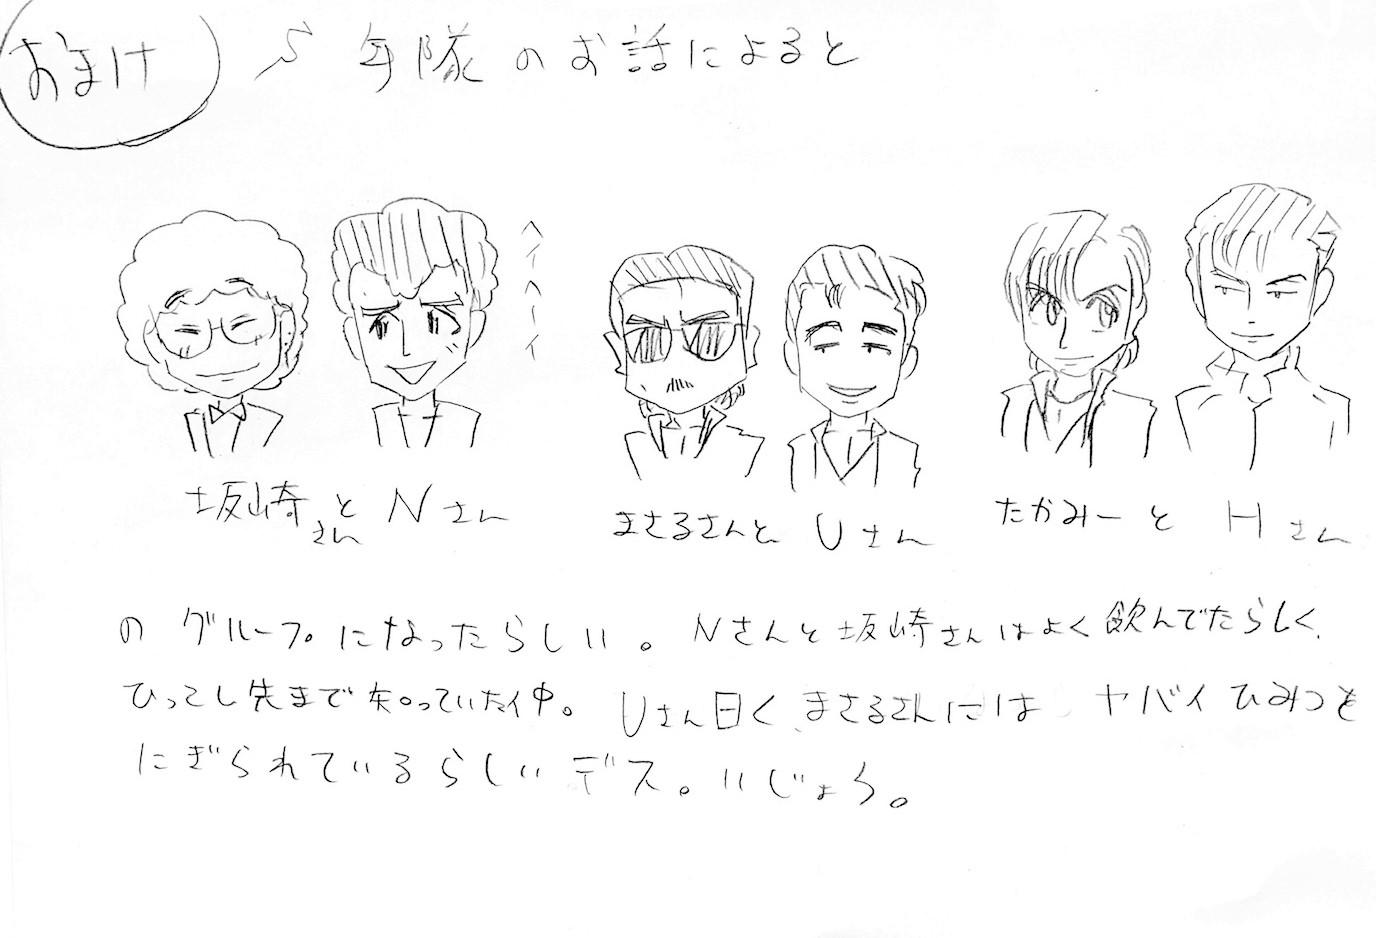 おまけ
年隊のお話によると
ヘイヘーイ
坂崎さんとNさん
まさるさんと Uさん
たかみーと Hさん
のグループになったらしい。Nさんと坂崎さんはよく飲んでたらしく、
ひっこし先まで知っていた仲。Uさん曰く、まさるさんには ヤバイひみつを
にぎられているらしいデス。いじょう。